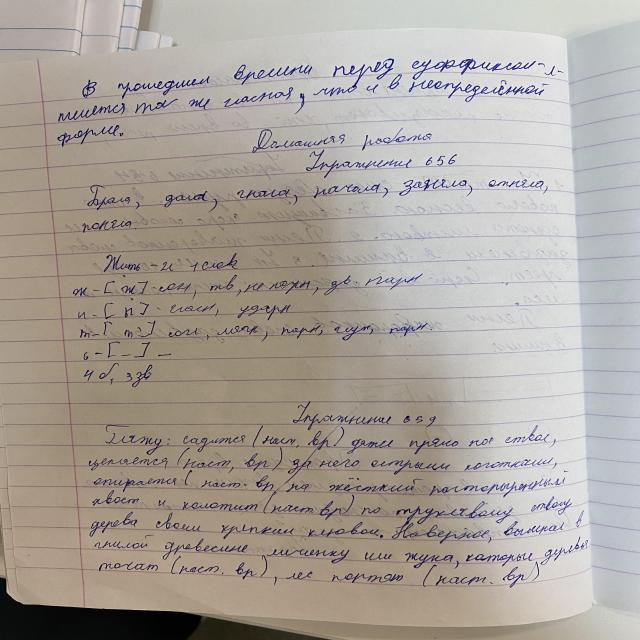 В прошедшем времени перед суффиксом -л-
пишется та же гласная, что и в неопределённой
форме.
Домашняя работа
Упражнение 656
Брала, дала, гнала, начала, заняла, отняла,
поняла.
Жить - 1 слог
ж - [ж] - сон, тв, непарн, зв. парн
и - [ ] - гласн, ударн
т - [т'] - согл, мягк, парн, глух, парн.
ь - [-] -
4 б, 3 зв
Упражнение 659
Гляжу: садится (наст. вр) даже прямо на ствол,
цепляется (наст, вр) за него острыми коготками,
опирается (наст. вр на жёсткий растопыренный
хвост и колотит (наст вр) по трухлявому стволу
дерева своим крепким клювом. Наверное, в
гнилой древесине личинку или жука, которые деревья
точат (наст. вр), лес портят (наст. вр)